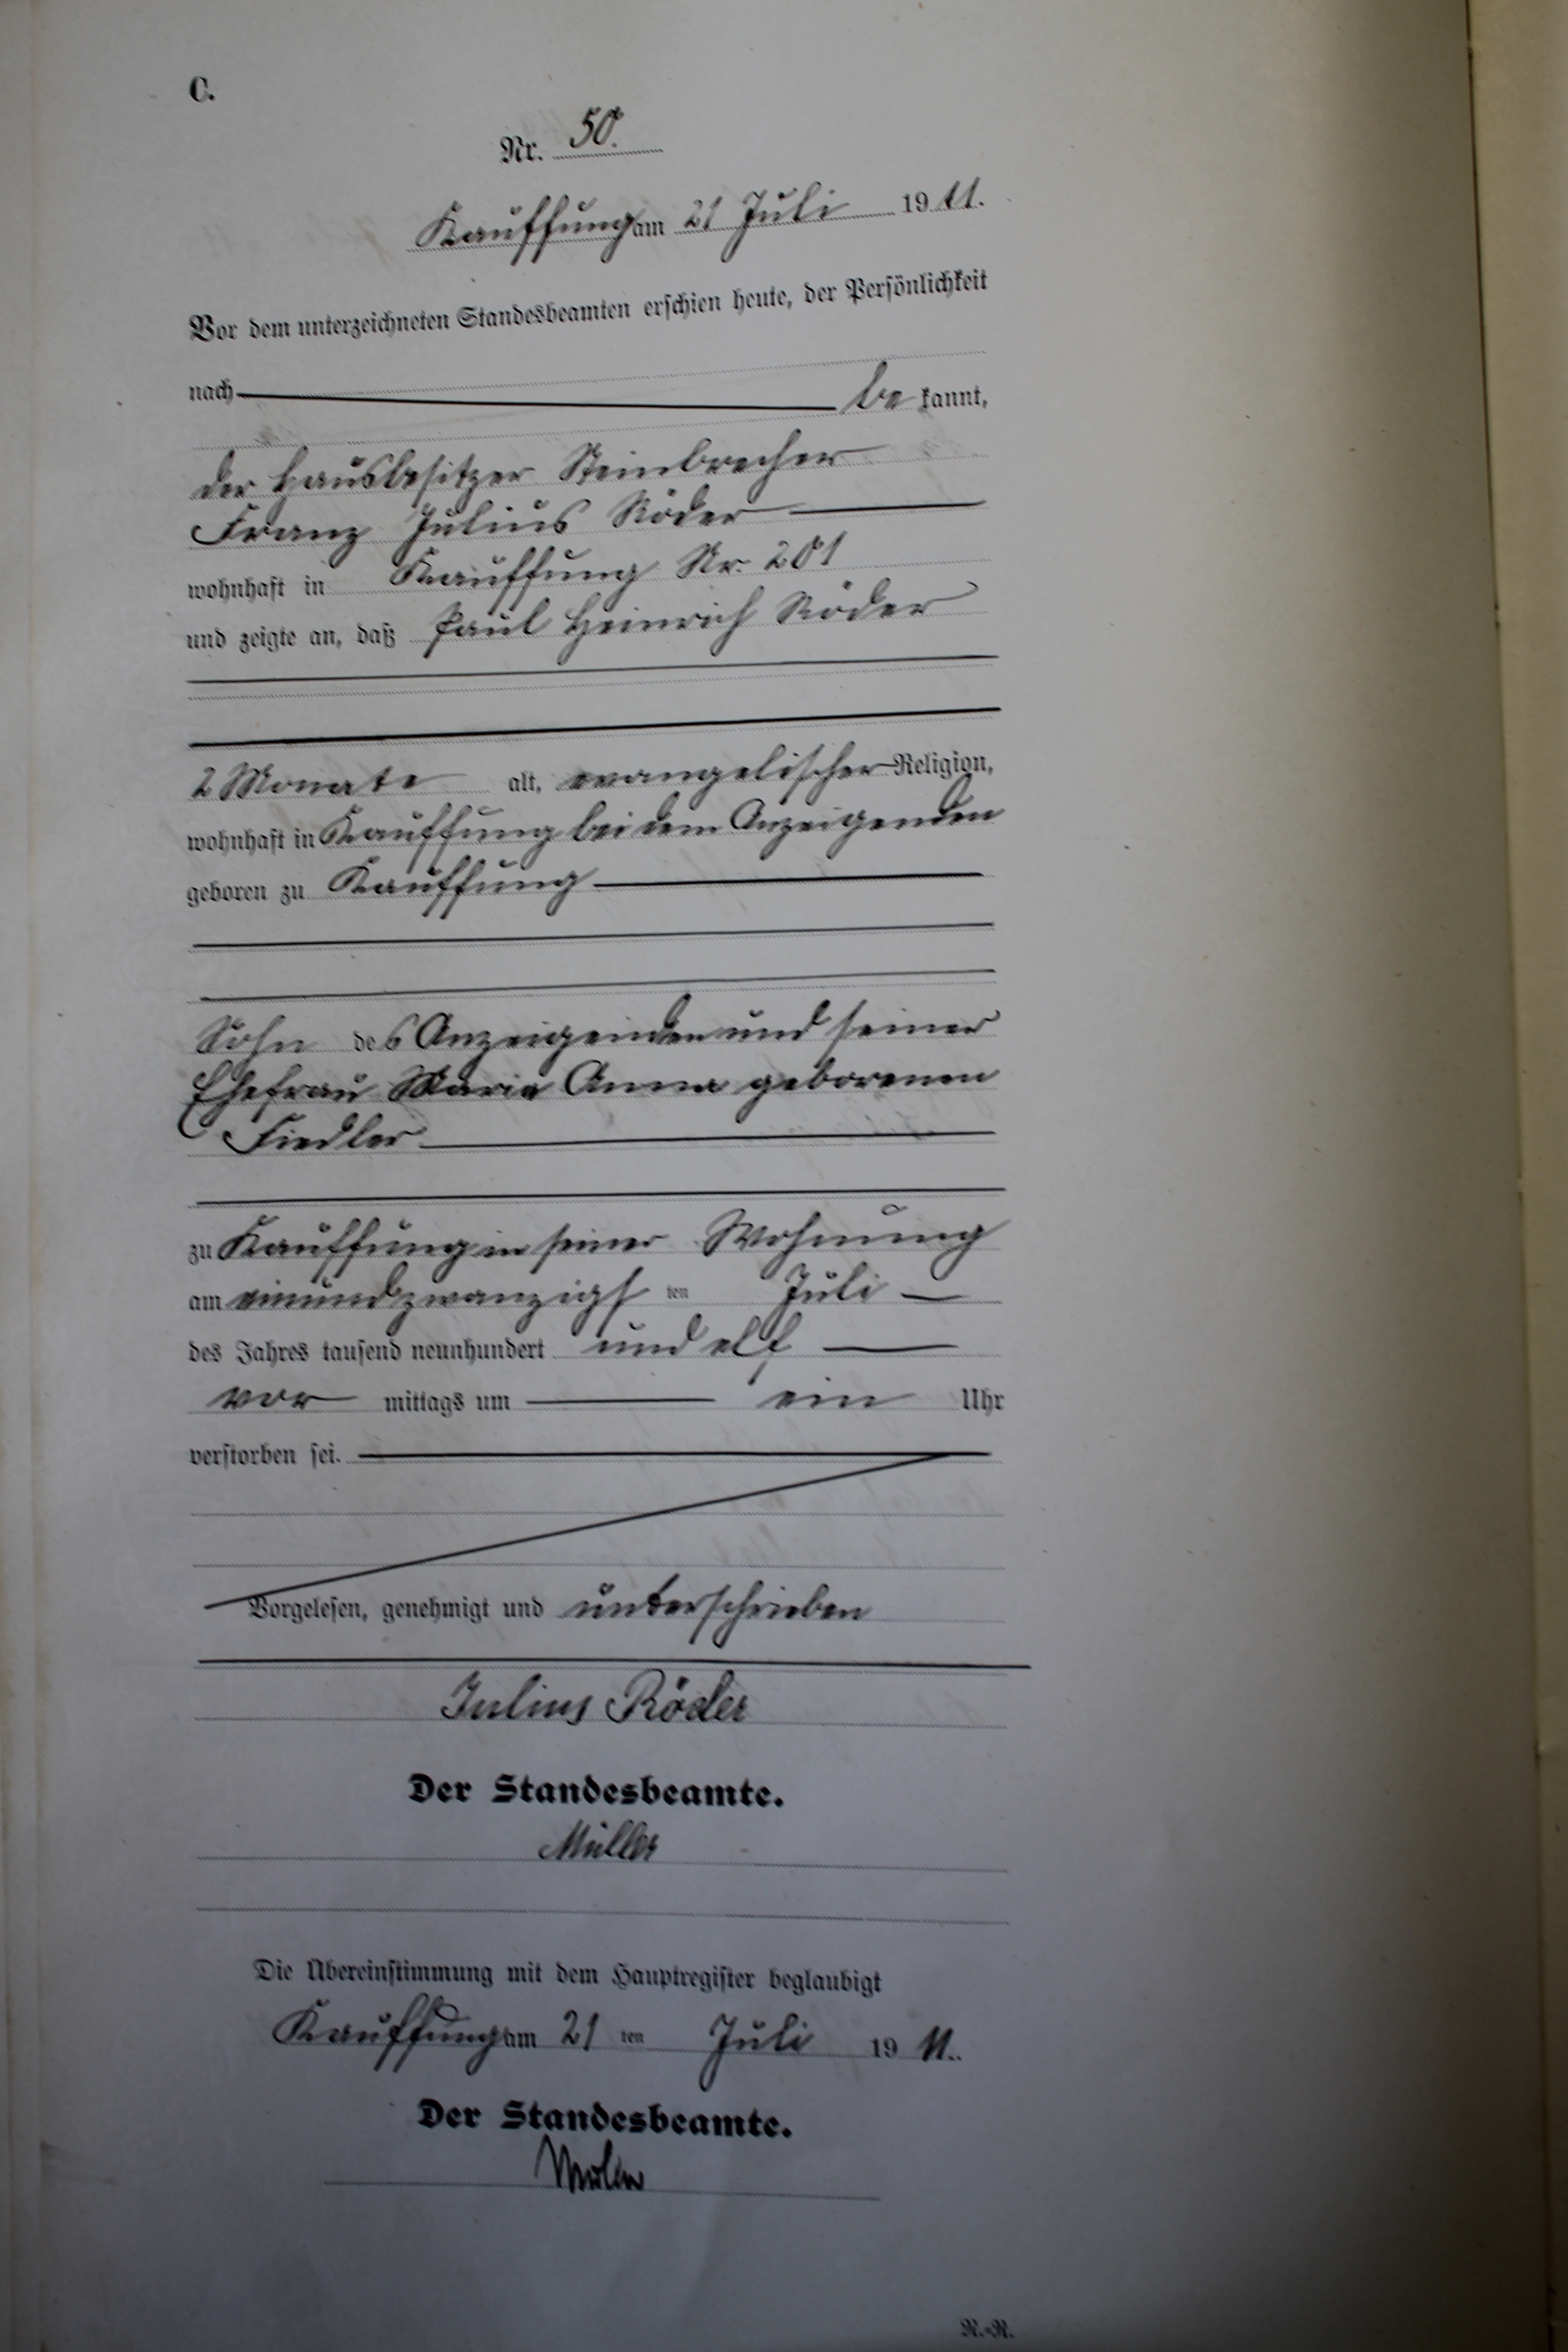 C.
Nr. 50.
Kauffung am 21 Juli 1911.
Vor dem unterzeichneten Standesbeamten erschien heute, der Persönlichkeit
nach be kannt,
der Hausbesitzer Steinbrecher
Franz Julius Röder
wohnhaft in Kauffung Nr. 201
und zeigte an, daß Paul Heinrich Röder
2 Monate alt, evangelischer Religion,
wohnhaft in Kauffung bei dem Anzeigenden
geboren zu Kauffung
Sohn des Anzeigenden und seiner
Ehefrau Maria Anna geborenen
Fiedler
zu Kauffung in seiner Wohnung
am einundzwanzigs ten Juli
des Jahres tausend neunhundert und elf
vor mittags um ein Uhr
verstorben sei.
Vorgelesen, genehmigt und unterschrieben
Julius Röder
Der Standesbeamte.
Müller
Die Übereinstimmung mit dem Hauptregister beglaubigt
Kauffung am 21 ten Juli 19 11.
Der Standesbeamte.
Müller
R.-R.